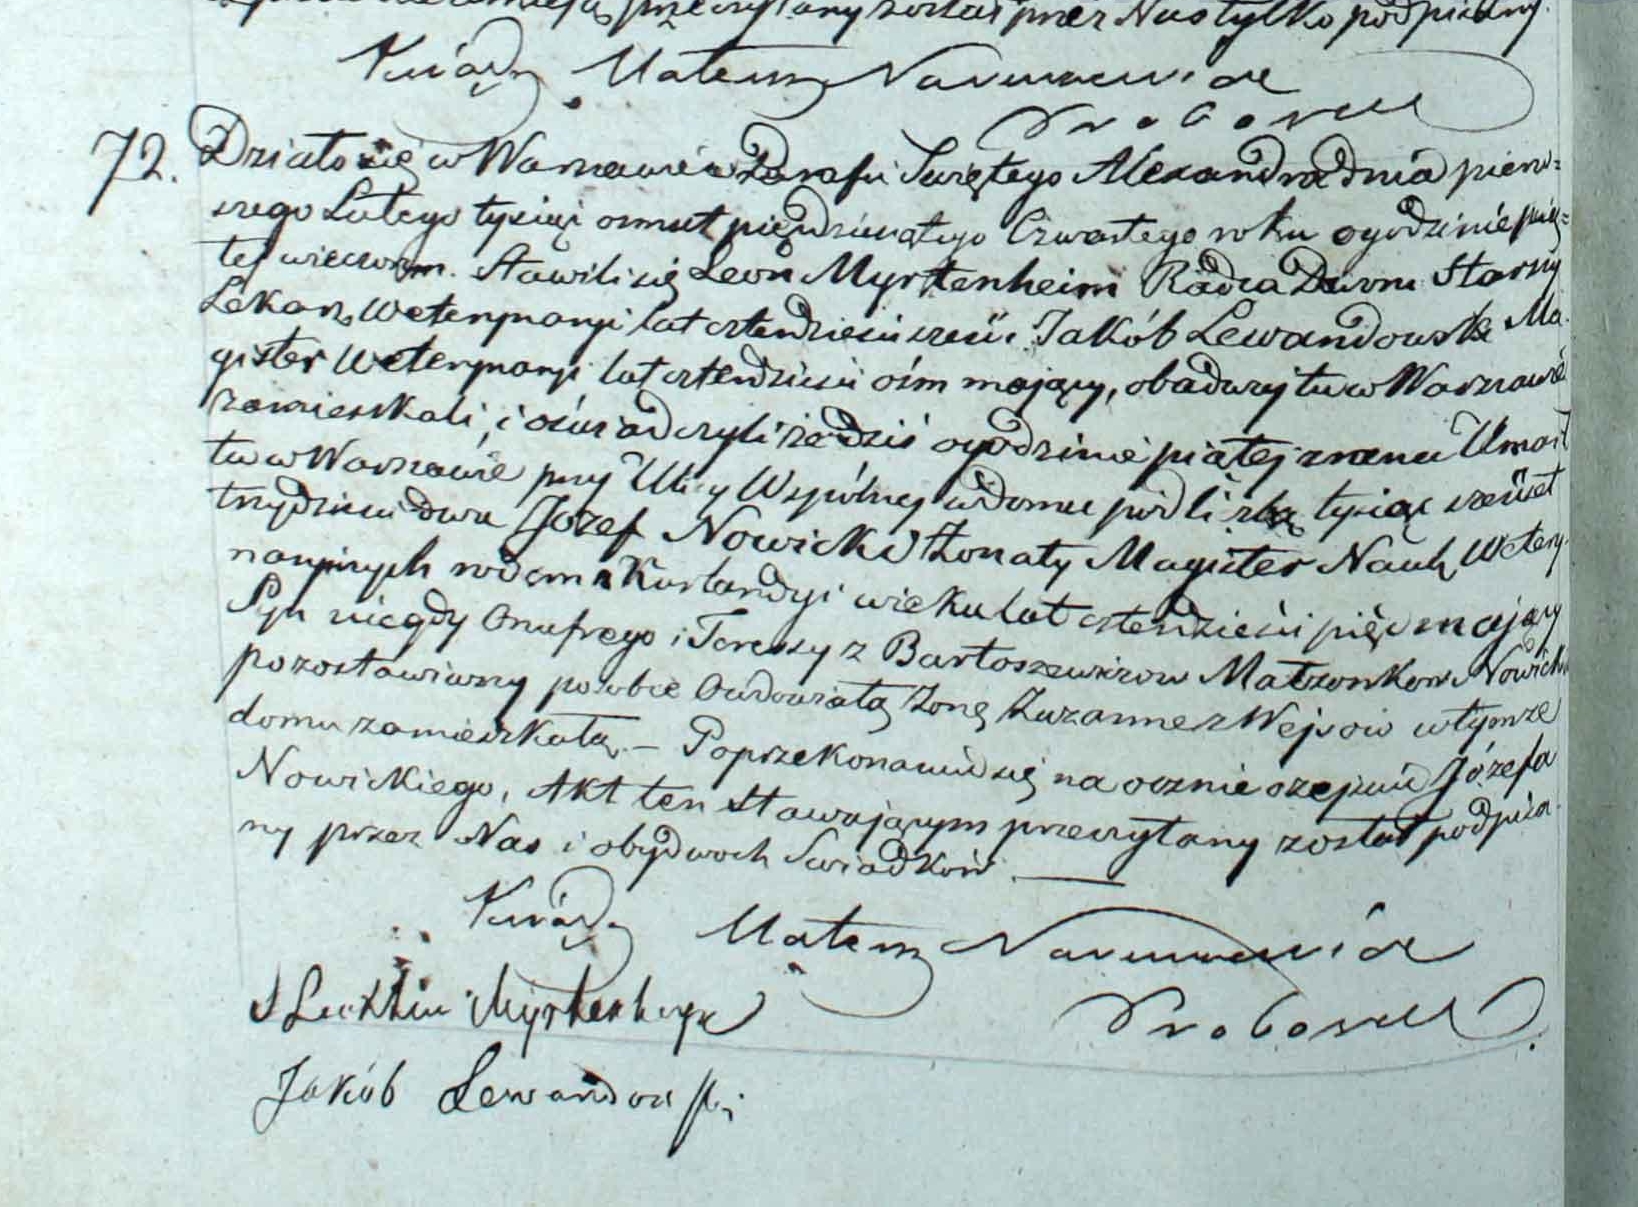 przeczytany został przez Nas tylko podpisany.
Xiądz Mateusz
Proboszcz
72. Działo się w Warszawie w Parafii Swiętego Alexandra dnia pierw=
szego Lutego tysiąc osmset pięćdziesiątego Czwartego roku o godzinie pią=
tej wieczorem. Stawili się Leon Myrtenheim Radca Dworu Starszy
Lekarz Weterynaryi lat czterdzieści sześć i Jakób Lewandowski Ma-
gister Weterynaryi lat czterdzieści óśm mający, obadwaj tu w Warszawie
zamieszkali, i oświadczyli że dziś o godzinie piątej z rana Umarł
tu w Warszawie przy Ulicy Wspólney w domu pod liczbą tysiąc szeset
trzydzieści dwa Józef Nowicki Żonaty Magister Nauk Wetery-
naryinych rodem z Kurlandyi wieku lat czterdzieści pięć mający
Syn niegdy Onufrego i Teressy z Bartoszewiczow Małżonkow Nowickich
pozostawiwszy po sobie Owdowiałą Żonę Zuzannę z Wejsow w tymże
domu zamieszkałą. — Po przekonaniu się na ocznie o zejściu Józefa
Nowickiego, Akt ten Stawającym przeczytany został podpisa-
ny przez Nas i obydwoch Swiadków. —
Xiądz Mateusz
Proboszcz
Jakób Lewandowski